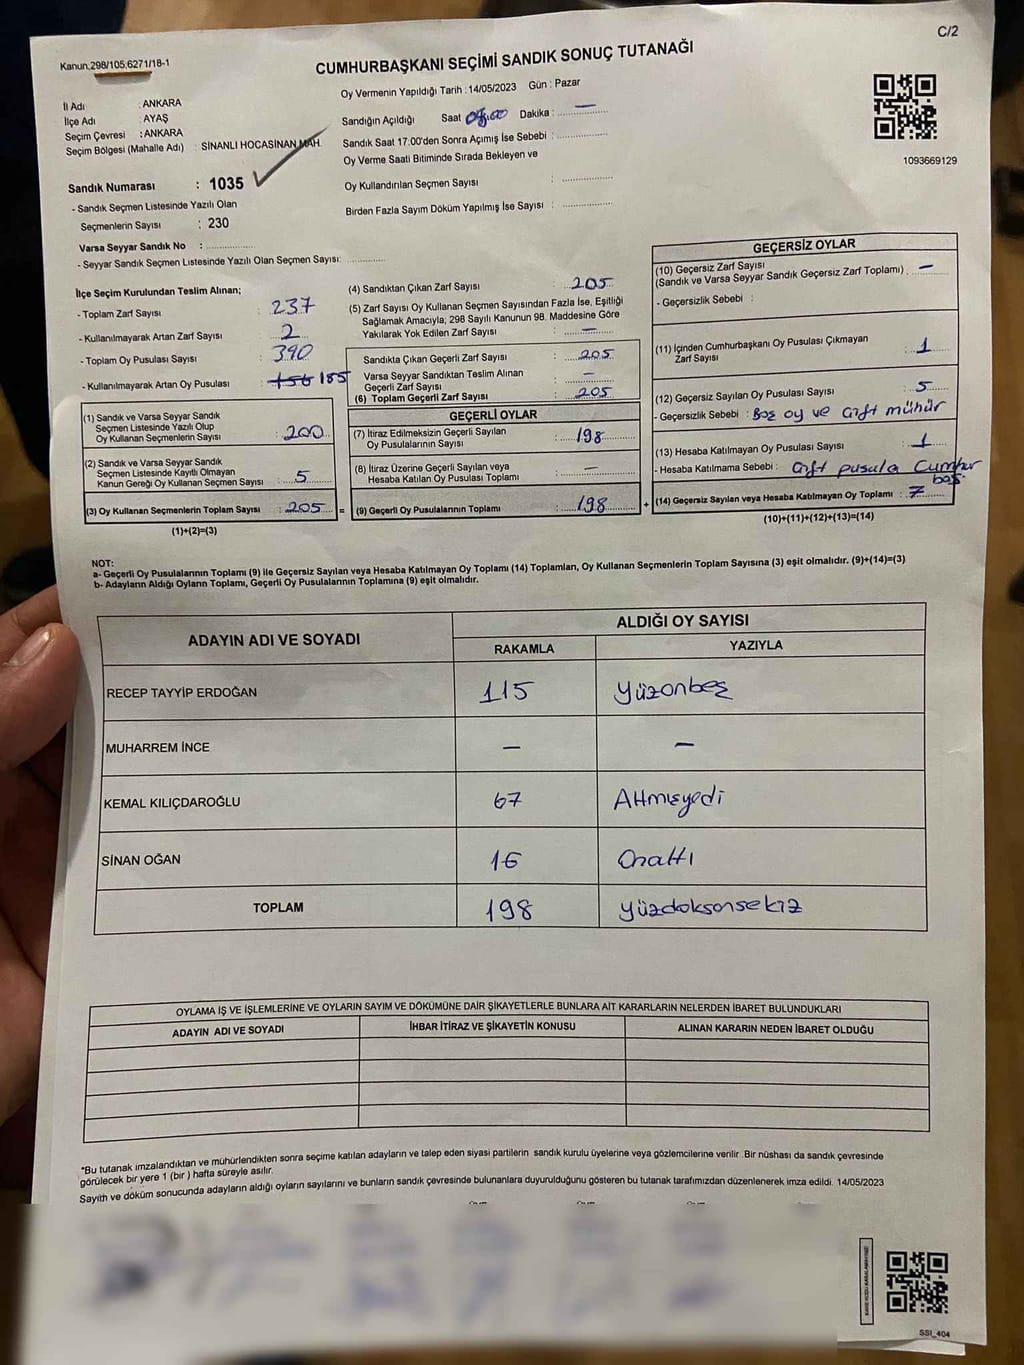 C/2
Kanun.298/105;6271/18-1
CUMHURBAŞKANI SEÇİMİ SANDIK SONUÇ TUTANAĞI
İl Adı : ANKARA
İlçe Adı : AYAŞ
Seçim Çevresi : ANKARA
Seçim Bölgesi (Mahalle Adı) : SİNANLI HOCASİNAN MAH.
Sandık Numarası : 1035
- Sandık Seçmen Listesinde Yazılı Olan
Seçmenlerin Sayısı : 230
Varsa Seyyar Sandık No : ..............
- Seyyar Sandık Seçmen Listesinde Yazılı Olan Seçmen Sayısı: ............
Oy Vermenin Yapıldığı Tarih : 14/05/2023 Gün : Pazar
Sandığın Açıldığı Saat Dakika : —
Sandık Saat 17:00'den Sonra Açımış İse Sebebi : ..............
Oy Verme Saati Bitiminde Sırada Bekleyen ve
Oy Kullandırılan Seçmen Sayısı : ..............
Birden Fazla Sayım Döküm Yapılmış İse Sayısı : ..............
1093669129
İlçe Seçim Kurulundan Teslim Alınan;
- Toplam Zarf Sayısı : 237
- Kullanılmayarak Artan Zarf Sayısı : 2
- Toplam Oy Pusulası Sayısı : 390
- Kullanılmayarak Artan Oy Pusulası : 156 185
(1) Sandık ve Varsa Seyyar Sandık
Seçmen Listesinde Yazılı Olup
Oy Kullanan Seçmenlerin Sayısı : 200
(2) Sandık ve Varsa Seyyar Sandık
Seçmen Listesinde Kayıtlı Olmayan
Kanun Gereği Oy Kullanan Seçmen Sayısı : 5
(3) Oy Kullanan Seçmenlerin Toplam Sayısı : 205 =
(1)+(2)=(3)
(4) Sandıktan Çıkan Zarf Sayısı : 205
(5) Zarf Sayısı Oy Kullanan Seçmen Sayısından Fazla İse, Eşitliği
Sağlamak Amacıyla; 298 Sayılı Kanunun 98. Maddesine Göre
Yakılarak Yok Edilen Zarf Sayısı : —
Sandıkta Çıkan Geçerli Zarf Sayısı : 205
Varsa Seyyar Sandıktan Teslim Alınan
Geçerli Zarf Sayısı : —
(6) Toplam Geçerli Zarf Sayısı : 205
GEÇERLİ OYLAR
(7) İtiraz Edilmeksizin Geçerli Sayılan
Oy Pusulalarının Sayısı : 198
(8) İtiraz Üzerine Geçerli Sayılan veya
Hesaba Katılan Oy Pusulası Toplamı : —
(9) Geçerli Oy Pusulalarının Toplamı : 198 +
GEÇERSİZ OYLAR
(10) Geçersiz Zarf Sayısı
(Sandık ve Varsa Seyyar Sandık Geçersiz Zarf Toplamı) : —
- Geçersizlik Sebebi :
(11) İçinden Cumhurbaşkanı Oy Pusulası Çıkmayan
Zarf Sayısı : 1
(12) Geçersiz Sayılan Oy Pusulası Sayısı : 5
- Geçersizlik Sebebi : Boş oy ve çift mühür
(13) Hesaba Katılmayan Oy Pusulası Sayısı : 1
- Hesaba Katılmama Sebebi : Çift pusula Cumhur
boş
(14) Geçersiz Sayılan veya Hesaba Katılmayan Oy Toplamı : 7
(10)+(11)+(12)+(13)=(14)
NOT:
a- Geçerli Oy Pusulalarının Toplamı (9) ile Geçersiz Sayılan veya Hesaba Katılmayan Oy Toplamı (14) Toplamları, Oy Kullanan Seçmenlerin Toplam Sayısına (3) eşit olmalıdır. (9)+(14)=(3)
b- Adayların Aldığı Oyların Toplamı, Geçerli Oy Pusulalarının Toplamına (9) eşit olmalıdır.
ADAYIN ADI VE SOYADI ALDIĞI OY SAYISI
RAKAMLA YAZIYLA
RECEP TAYYİP ERDOĞAN 115 Yüzonbeş
MUHARREM İNCE — —
KEMAL KILIÇDAROĞLU 67 Altmışyedi
SİNAN OĞAN 16 Onaltı
TOPLAM 198 Yüzdoksansekiz
OYLAMA İŞ VE İŞLEMLERİNE VE OYLARIN SAYIM VE DÖKÜMÜNE DAİR ŞİKAYETLERLE BUNLARA AİT KARARLARIN NELERDEN İBARET BULUNDUKLARI
ADAYIN ADI VE SOYADI İHBAR İTİRAZ VE ŞİKAYETİN KONUSU ALINAN KARARIN NEDEN İBARET OLDUĞU
*Bu tutanak imzalandıktan ve mühürlendikten sonra seçime katılan adayların ve talep eden siyasi partilerin sandık kurulu üyelerine veya gözlemcilerine verilir .Bir nüshası da sandık çevresinde
görülecek bir yere 1 (bir ) hafta süreyle asılır.
Sayım ve döküm sonucunda adayların aldığı oyların sayılarını ve bunların sandık çevresinde bulunanlara duyurulduğunu gösteren bu tutanak tarafımızdan düzenlenerek imza edildi. 14/05/2023
SSI_404